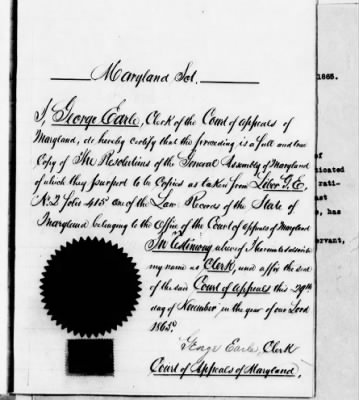 Maryland Sct.
I, George Earle, Clerk of the Court of appeals of
Maryland, do hereby certify that the foregoing is a full and true
Copy of The Resolutions of the General Assembly of Maryland
of which they purport to be Copies as taken from Liber G. E.
No. 2 folio 415. one of the Law Records of the State of
Maryland belonging to the Office of the Court of Appeals of Maryland
In testimony whereof I hereunto subscribe
my name as Clerk, and affix the seal
of the said Court of Appeals this 29th
day of November in the year of our Lord
1865.
George Earle, Clerk
Court of Appeals of Maryland.
1865.
of
nicated
rati-
, has
rvant,